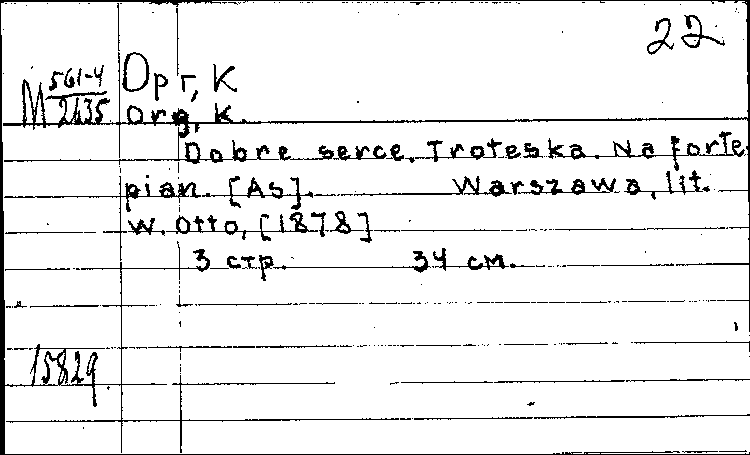 22
М 561-4/2635 Орг, К
Org, K.
Dobre serce. Troteska. Na forte-
pian. [As]. Warszawa, lit.
W. Otto, [1878]
3 стр. 34 см.
15829